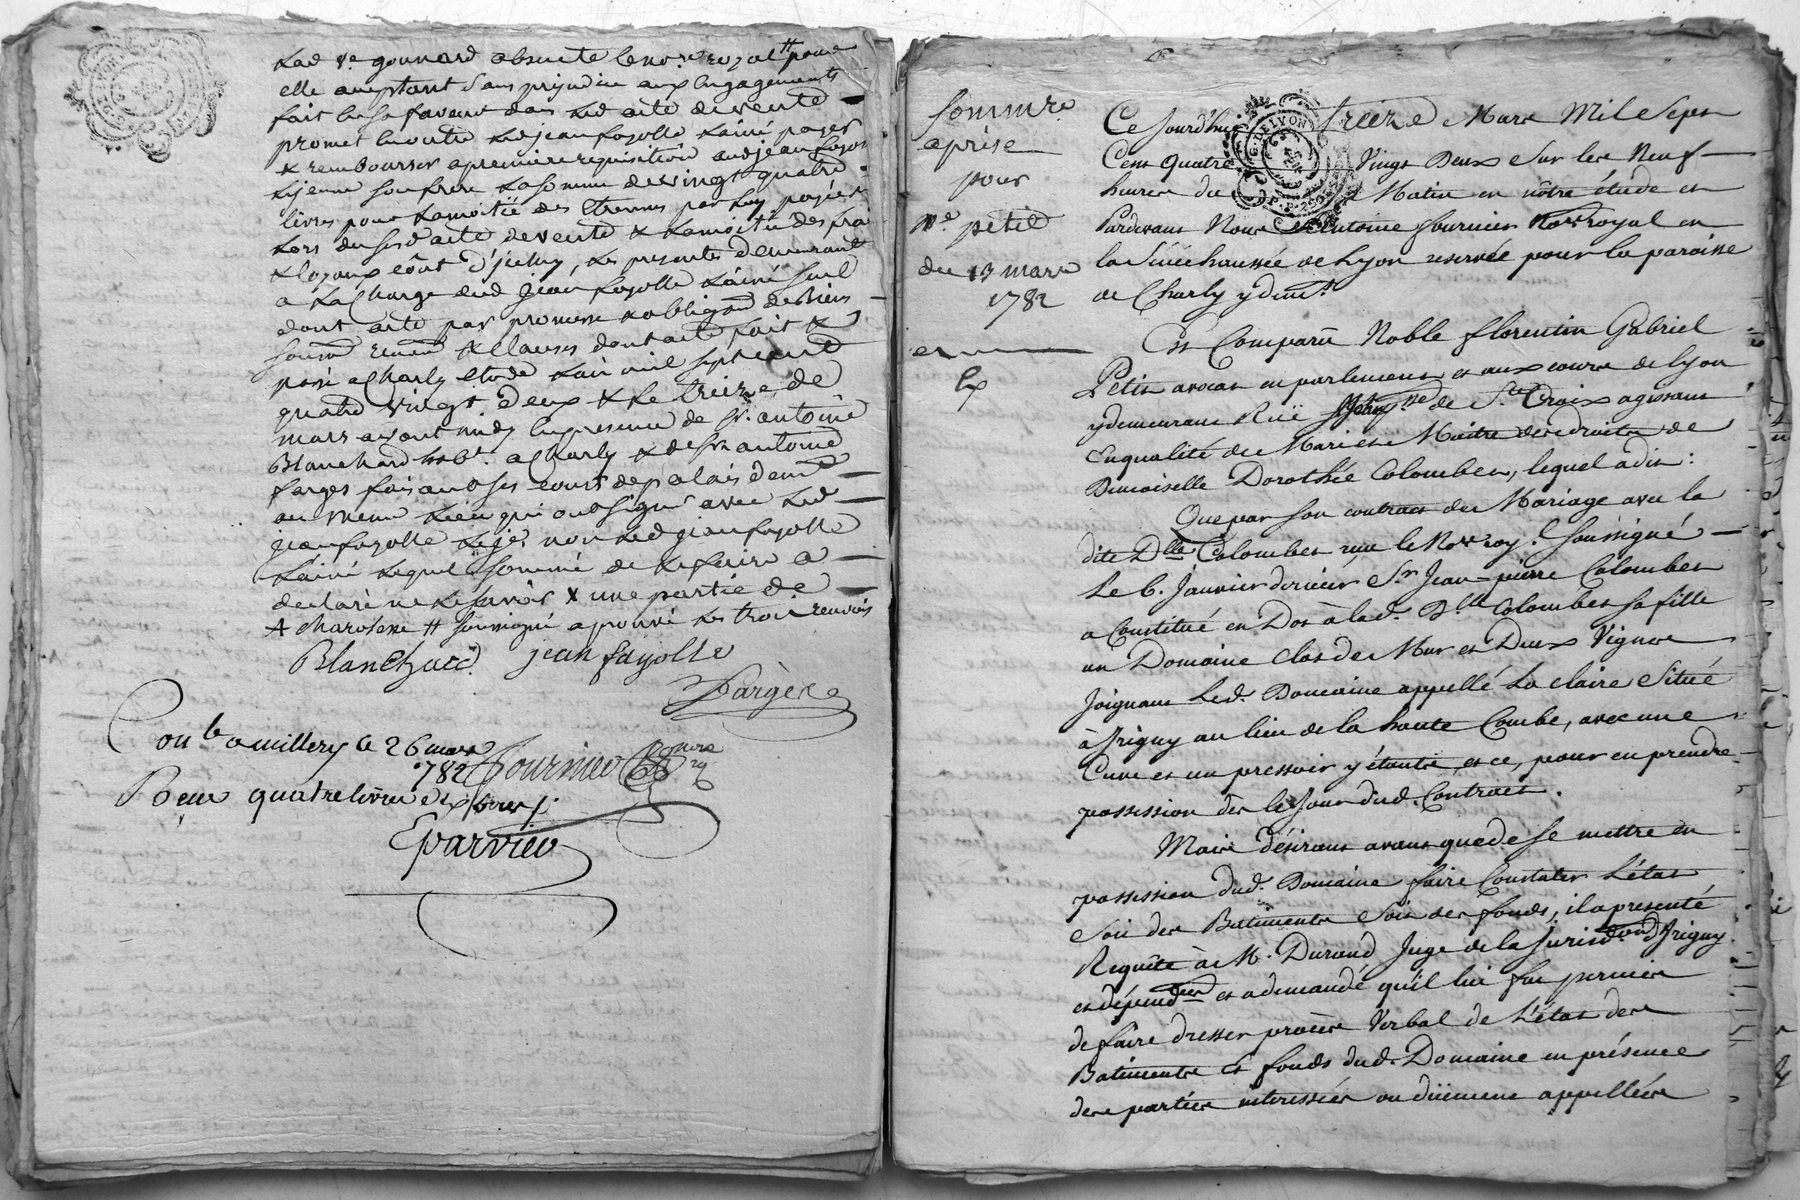 Lad. Ve. gounard absente le no.re royal # pour
elle acceptant sans prejudice aux Engagements
fait En sa faveur dans led acte de vente
promet En outre led jean fayolle Lainé payer
& rembourser a premiere requisition aud jean fayolle
Le jeune son frere La somme de vingt quatre
livres pour La moitié des Etrennes par Luy payées
Lors du susd acte de vente & La moitié des frais
& loyaux coût d'iceluy, Les presentes demeurant
a La Charge dud jean fayolle Lainé seul
dont acte par promesse & obligaōn de Biens
soumōn renonōn & Clauses dont acte fait &
passé a Charly Etude L'an mil sept cent
quatre vingt deux & le treize de
mars avant midy En presence de Sr. antoine
Blanchard hab.t a Charly & de Sr antoine
farges faisant ses cours de palais demt
au meme Lieu qui ont signé avec Led
jean fayolle Le je. non Led jean fayolle
Lainé Lequel sommé de Le faire a
declaré ne Le savoir x une partie de
+ # soussigné aprouvé Les trois renvois
Blanchard jean fayolle
Fargese
Con.lé a millery le 26 mars
1782 Fournier
Reçu quatre livres dix sous
Eparvier
Sommre.
aprise
pour
Me. petit
du 13 mars
1782
Ex
Ce Jourd'huy treize Mars Mil Sept
Cent Quatre Vingt Deux Sur les Neuf
heures du Matin en nôtre étude et
Pardevant Nous Antoine fournier Nore royal en
la Sénéchaussée de Lyon reservée pour la paroisse
de Charly y demt.
Est Comparû Noble florentin Gabriel
Petit avocat en parlement et aux cours de Lyon
y demeurant Ruë de Ste Croix agissant
en qualité de Mari et Maître des droits de
Demoiselle Dorothée Colombet, lequel a dit:
Que par son contract de Mariage avec la
dite Dlle Colombet, reçu le Nore roy. soussigné
Le 6. Janvier dernier Sr Jean pierre Colombet
a Constitué en Dot à lad. Dlle Colombet sa fille
un Domaine Clos de Mur et Deux Vignes
Joignant Led. Domaine appellé la Claire Situé
à Irigny au lieu de la haute Combe, avec une
Cuve et un pressoir y étants, et ce, pour en prendre
possession dès le Jour dud. Contract.
Mais désirant avant que de se mettre en
possession dud. Domaine faire Constater L'état
Soit des Batiments Soit des fonds, il a presenté
Requête à M. Durand Juge de la Jurisdon d'Irigny
et dépendces et a demandé qu'il lui fut permis
de faire dresser procès Verbal de L'état des
Batiments et fonds dud. Domaine en présence
des parties interessées ou düement appellées